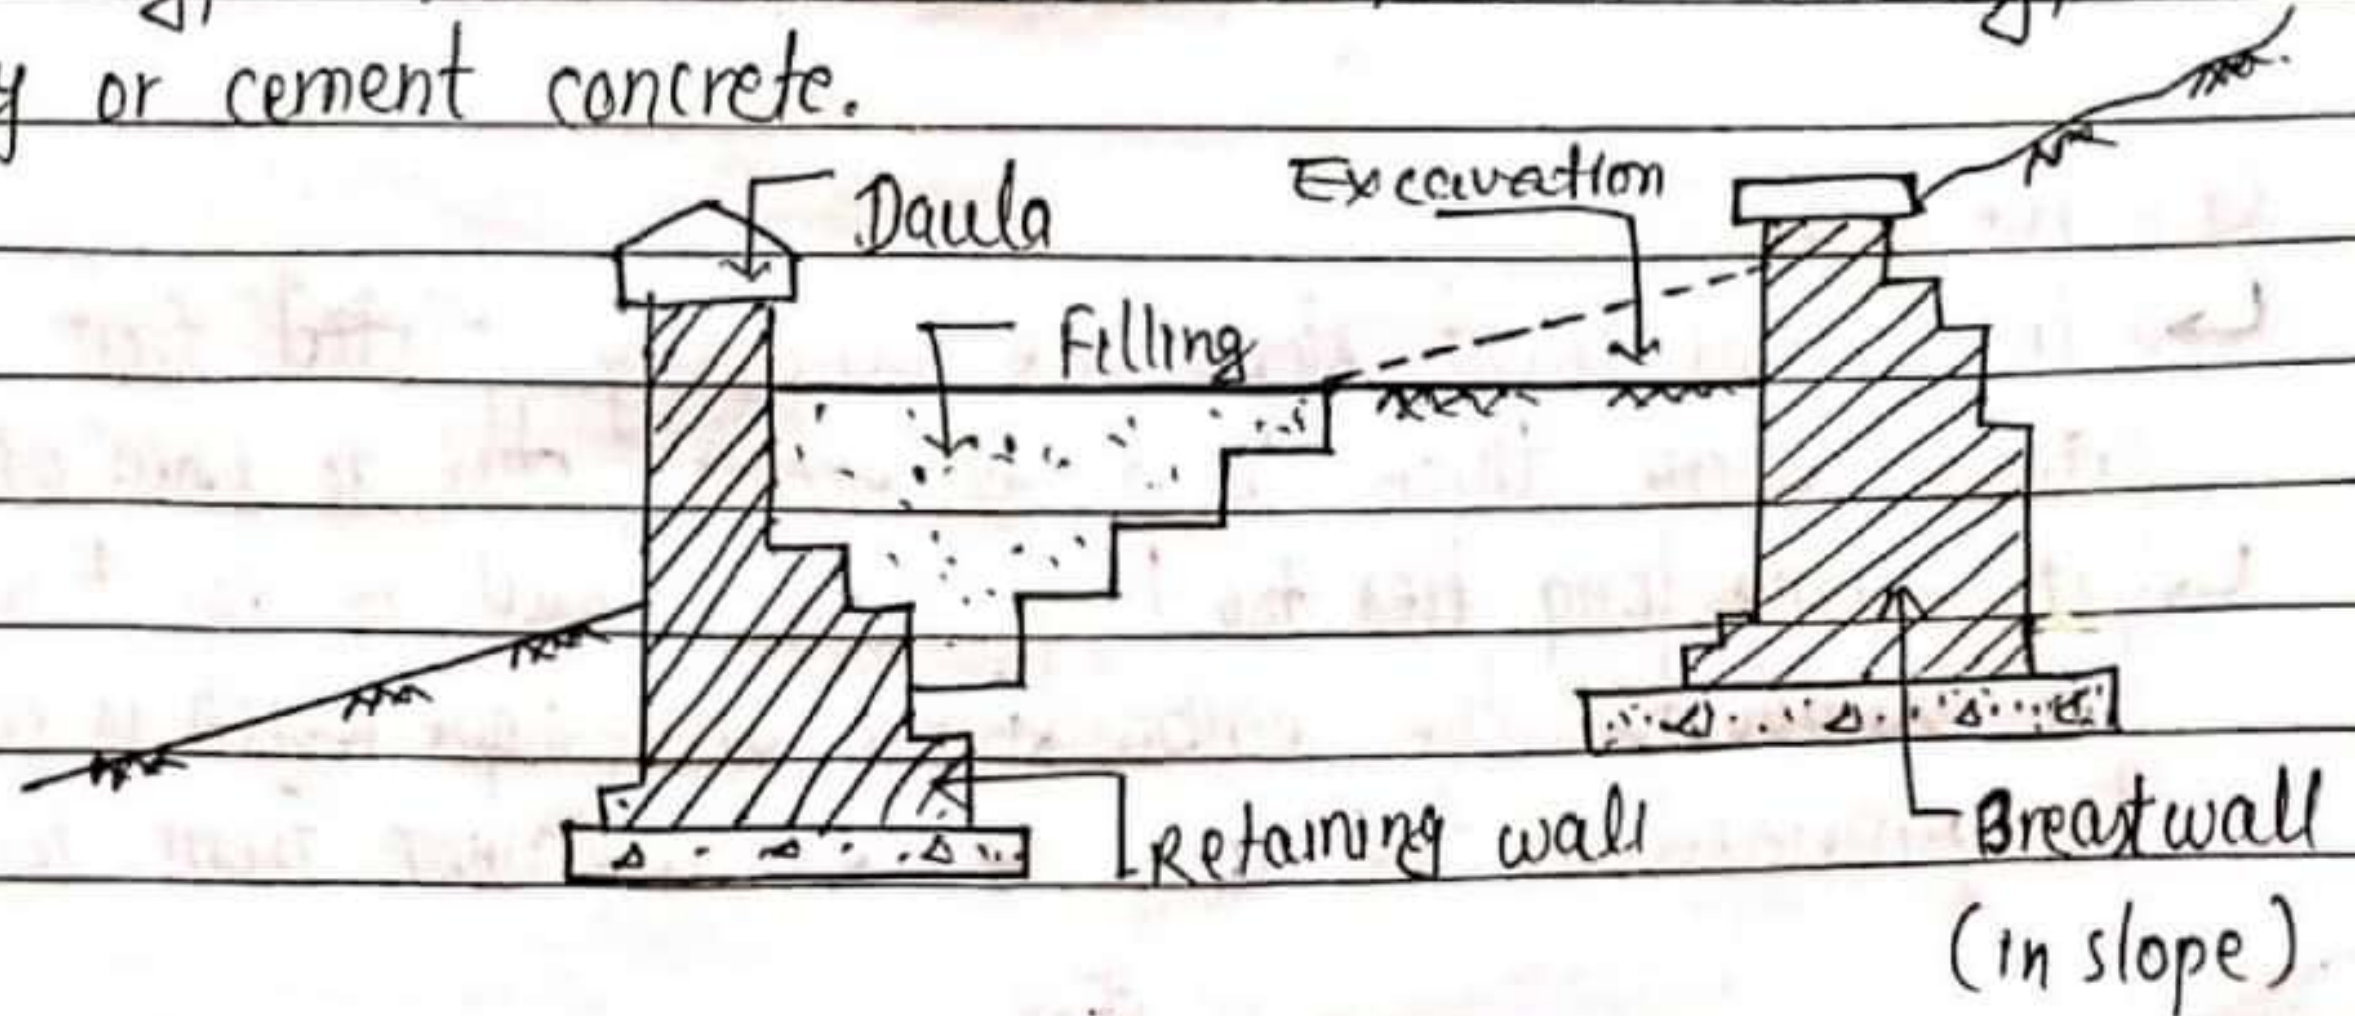 or cement concrete.
Daula
Excavation
Filling
Retaining wall
Breast wall
(in slope)